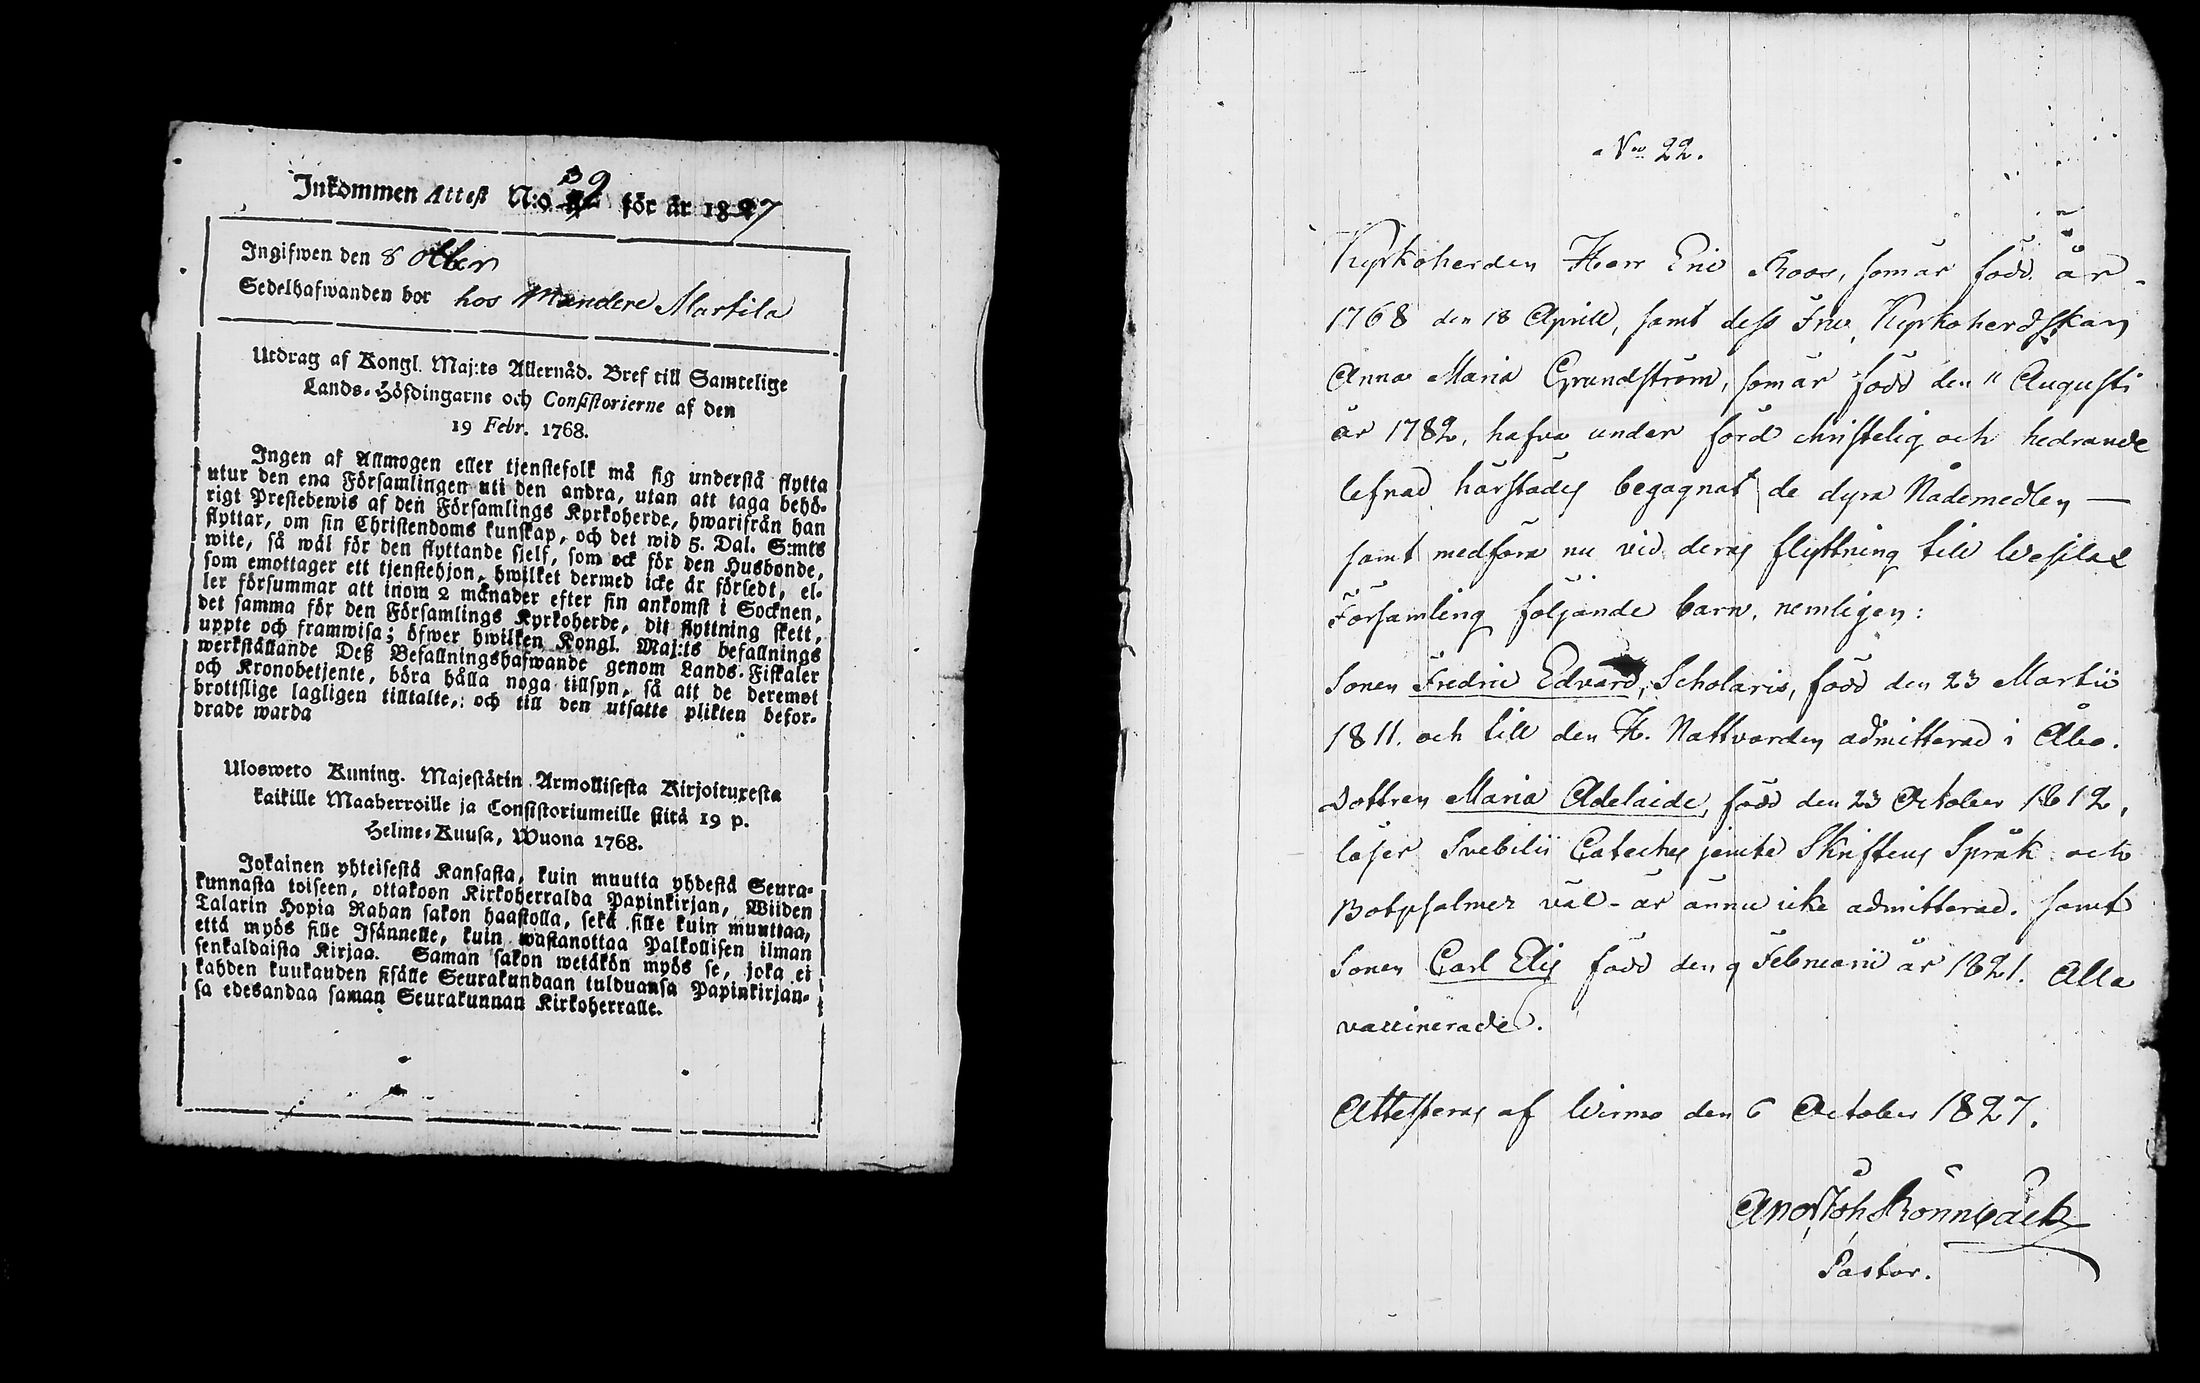 Inkommen Attest N:o 39 för år 1827
Ingifwen den 8 Octber
Sedelhafwanden bor hos Martila
Utdrag af Kongl. Maj:ts Allernåd. Bref till Samtelige
Lands-Höfdingarne och Consistorierne af den
19 Febr. 1768.
Ingen af Allmogen eller tjenstefolk må sig understå flytta
utur den ena Församlingen uti den andra, utan att taga behö-
rigt Prestebewis af den Församlings Kyrkoherde, hwarifrån han
flyttar, om sin Christendoms kunskap, och det wid 5. Dal. S:mts
wite, så wäl för den flyttande sjelf, som ock för den Husbonde,
som emottager ett tjenstehjon, hwilket dermed icke är försedt, el-
ler försummar att inom 2 månader efter sin ankomst i Socknen,
det samma för den Församlings Kyrkoherde, dit flyttning skett,
uppte och framwisa; öfwer hwilken Kongl. Maj:ts befallnings
werkställande Deß Befallningshafwande genom Lands-Fiskaler
och Kronobetjente, böra hålla noga tillsyn, så att de deremot
brottslige lagligen tilltalte, och till den utsatte plikten befor-
drade warda
Ulosweto Kuning. Majestätin Armollisesta Kirjoituxesta
kaikille Maaherroille ja Consistoriumeille siitä 19 p.
Helme-Kuusa, Wuona 1768.
Jokainen yhteisestä Kansasta, kuin muutta yhdestä Seura-
kunnasta toiseen, ottakoon Kirkoherralda Papinkirjan, Wiiden
Talarin Hopia Rahan sakon haastolla, sekä sille kuin muuttaa,
että myös sille Isännelle, kuin wastanottaa Palkollisen ilman
senkaldaista Kirjaa. Saman sakon wetäkön myös se, joka ei
kahden kuukauden sisälle Seurakundaan tulduansa Papinkirjan-
sa edesandaa saman Seurakunnan Kirkoherralle.
No 22.
Kyrkoherden Herr Eric Roos, som är född år
1768 den 18 Aprill, samt dess Fru, Kyrkoherdskan
Anna Maria Grundström, som är född den 11 Augusti
år 1782, hafva under förd christelig och hedrande
lefnad härstädes begagnat de dyra Nådemedlen —
samt medföra nu vid deras flyttning till Wesilax
Församling följande barn, nemligen:
Sonen Fredric Edvard, Scholaris, född den 23 Martii
1811. och till den H. Nattvarden admitterad i Åbo.
Dottren Maria Adelaide, född den 23 October 1812,
läser Svebilii Cateches jemte Skriftens Språk och
Botpsalmer väl - är ännu icke admitterad. samt
Sonen Carl Elis född den 9 Februarii år 1821. Alla
vaccinerade.
Attesteras af Wirmo den 6 October 1827.
And Joh Rönnbäck
Pastor.